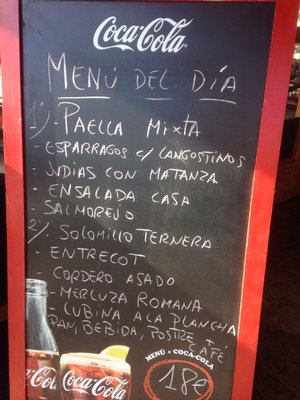 Coca-Cola
MENÚ DEL DÍA
1) - PAELLA MIXTA
- ESPARRAGOS C/ LANGOSTINOS
- JUDIAS CON MATANZA
- ENSALADA CASA
SALMOREJO
2) - SOLOMILLO TERNERA
- ENTRECOT
- CORDERO ASADO
- MERLUZA ROMANA
- LUBINA A LA PLANCHA
PAN, BEBIDA, POSTRE +
CAFÉ
MENÚ + COCA-COLA
18€
Coca-Cola
Coca-Cola